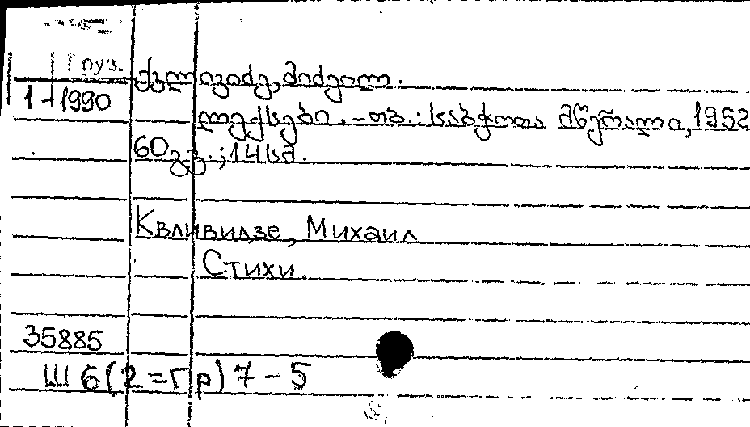 Груз.
ქვლივიძე, მიხეილ.
1-1990
ლექსები. - თბ.: საბჭოთა მწერალი, 1952
60გვ.; 14სმ.
Квливидзе, Михаил
Стихи.
35885
Ш6(2=Гр)7-5